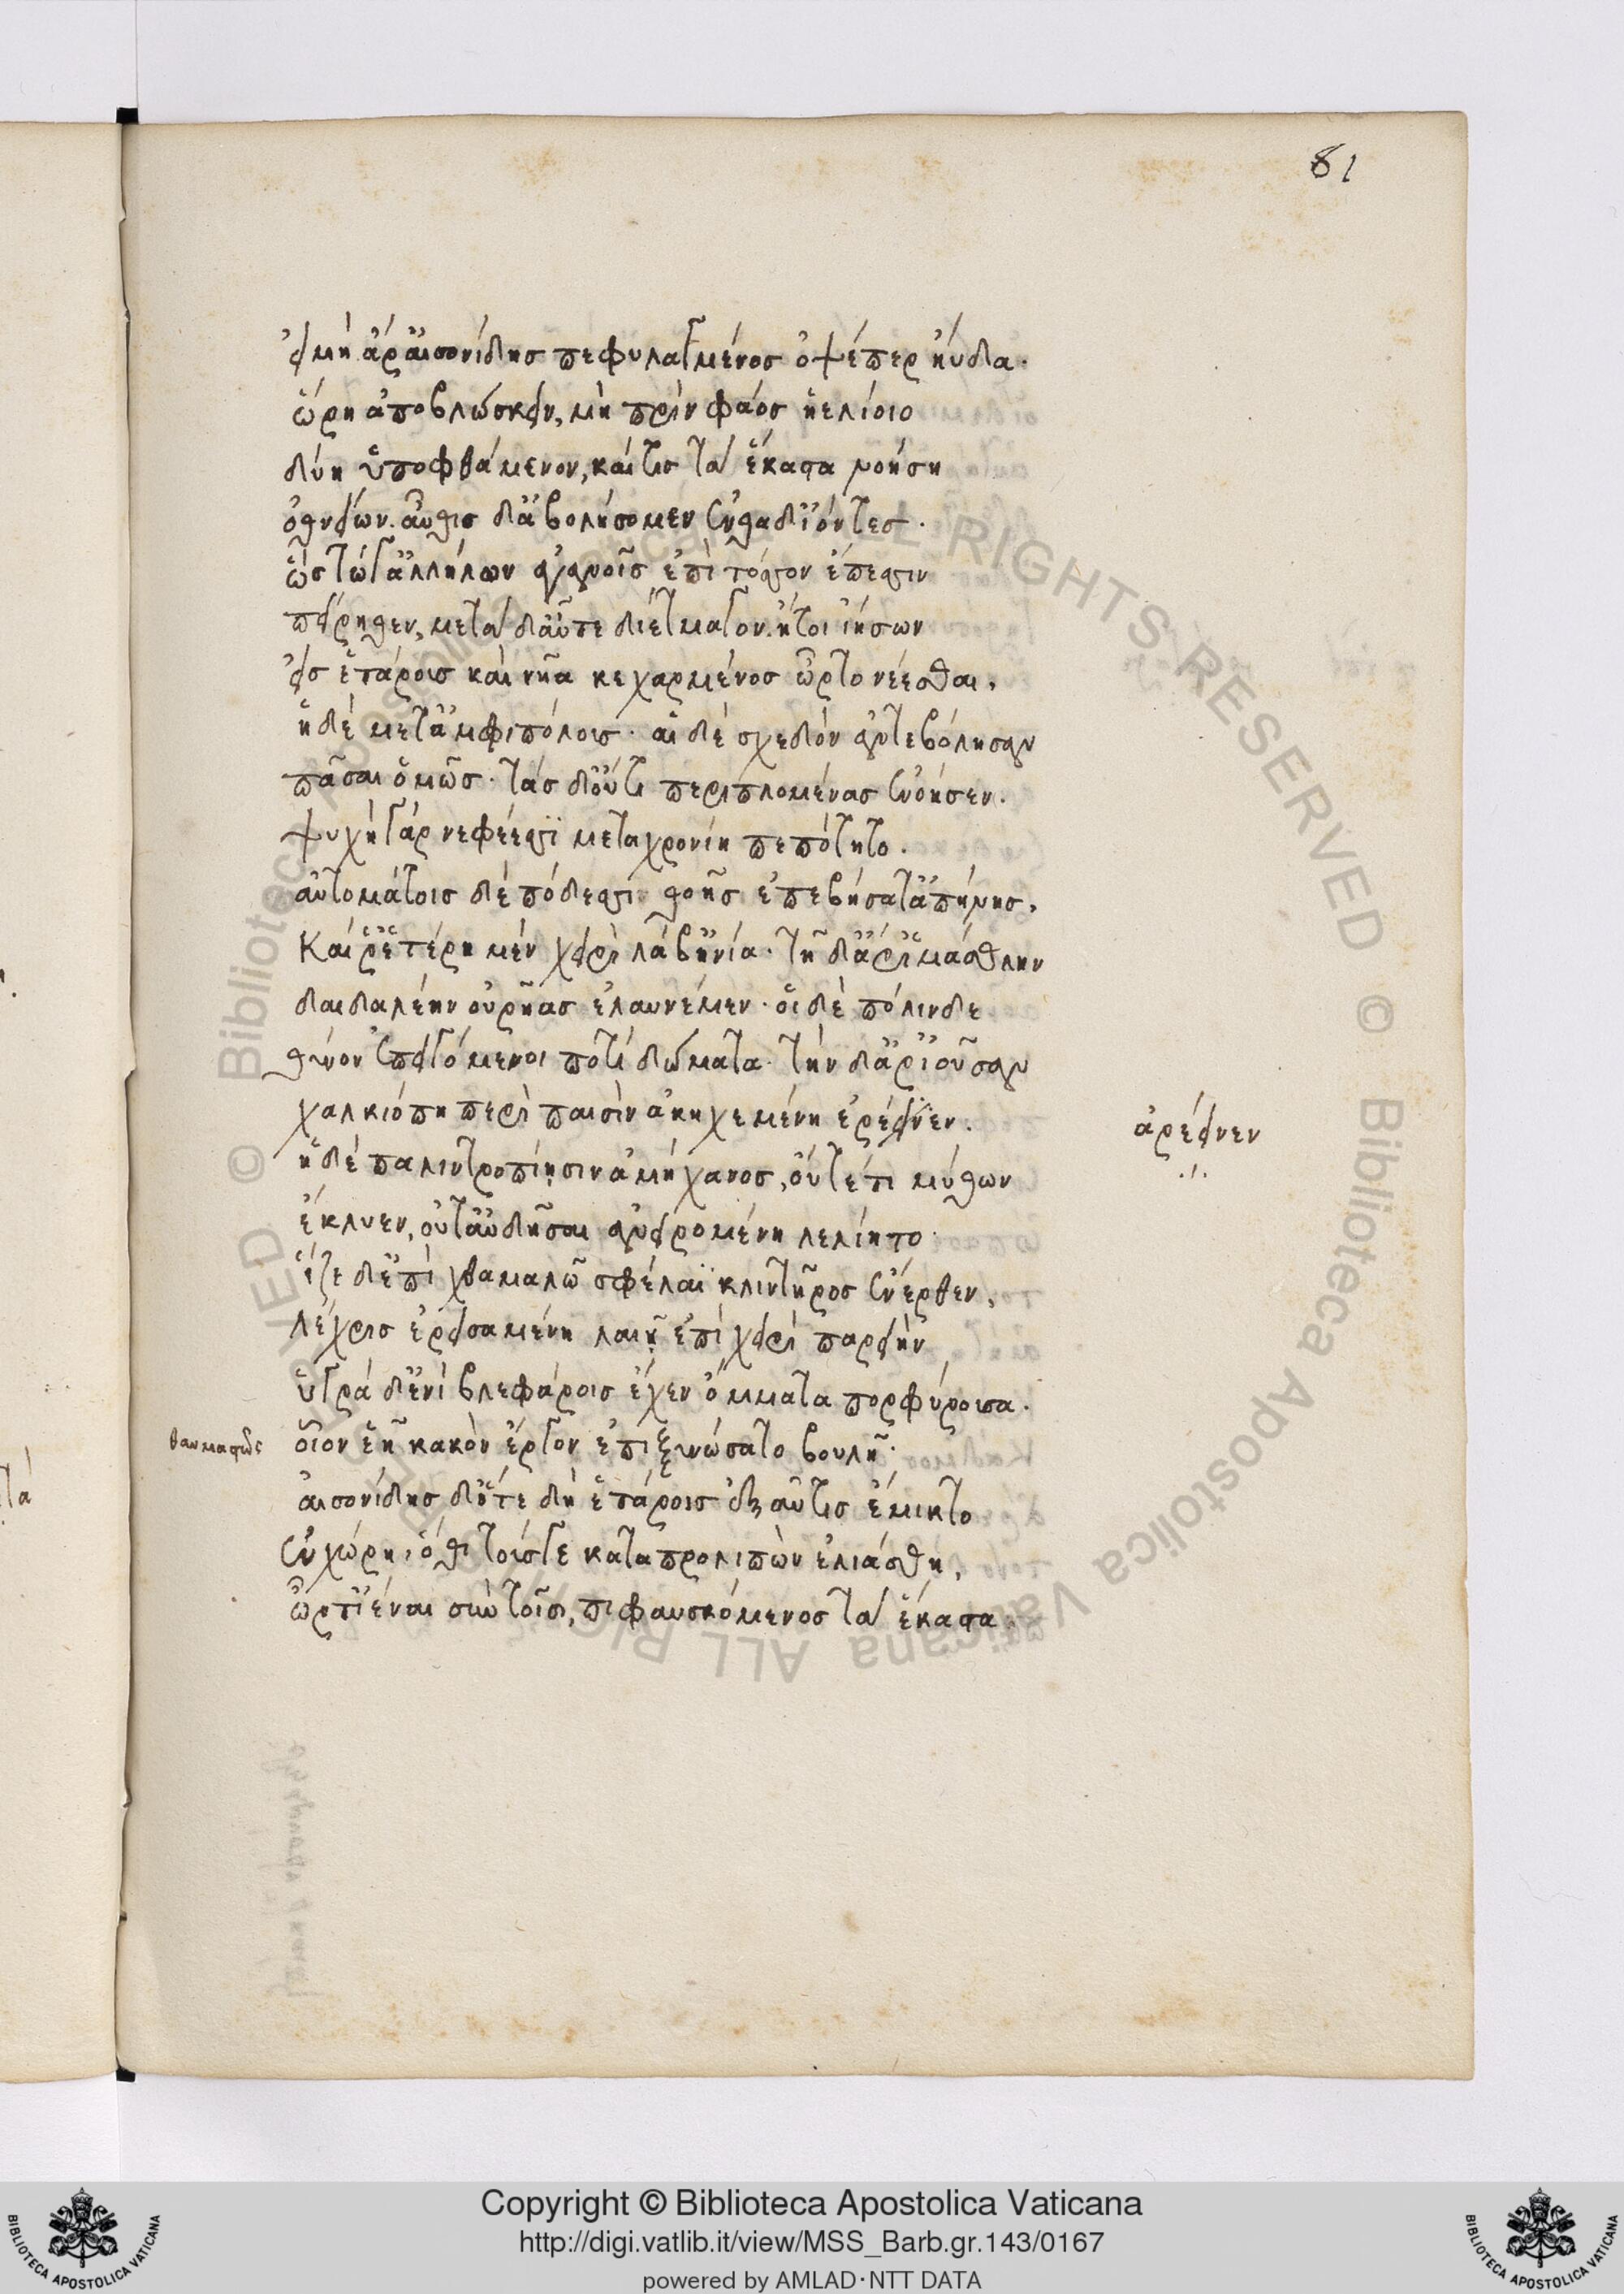 81
εἰ μὴ ἄρ αἰσονίδης πεφυλαγμένος ὀψέ περ ηὔδα·
ὥρη ἀποβλώσκειν, μὴ πρὶν φάος ἠελίοιο
δύη ὑποφθάμενον, καί τις τὰ ἕκαστα νοήση
ὀθνείων· αὖθις δ' ἀβολήσομεν ἐνθάδ' ἰόντες·
ὣς τώ γ' ἀλλήλων ἀγανοῖς ἐπὶ τόσσον ἔπεσσιν
πείρηθεν, μετὰ δ' αὖτε διέτμαγον· ἤτοι ἰήσων
εἰς ἑτάροις καὶ νῆα κεχαρμένος ὦρτο νέεσθαι,
ἡ δὲ μετ' ἀμφιπόλοις· αἱ δὲ σχεδὸν ἀντεβόλησαν
πᾶσαι ὁμῶς· τὰς δ' οὔτι περιπλομένας ἐνόησεν·
ψυχὴ γὰρ νεφέεσσι μεταχρονίη πεπότητο·
αὐτομάτοις δὲ πόδεσσι θοῆς ἐπεβήσατ' ἀπήνης,
Καί ῥ' ἑτέρη μὲν χειρὶ λάβ' ἡνία· τῆ δ' ἄρ' ἱμάσθλην
δαιδαλέην οὐρῆας ἐλαυνέμεν· οἱ δὲ πόλινδε
θῦνον ἐπειγόμενοι ποτὶ δώματα· τὴν δ' ἄρ' ἰοῦσαν
χαλκιόπη περὶ παισὶν ἀκηχεμένη ἐρέεινεν·
ἀρέεινεν
ἡ δὲ παλιντροπίησιν ἀμήχανος, οὔτ' ἔτι μύθων
ἔκλυεν, οὔτ' αὐδῆσαι ἀνειρομένη λελίητο·
ἷζε δ' ἐπὶ χθαμαλῶ σφέλαϊ κλιντῆρος ἔνερθεν,
λέχρις ἐρεισαμένη λαιῆ ἐπὶ χειρὶ παρειήν
ὑγρὰ δ' ἐνὶ βλεφάροις ἔχεν ὄμματα πορφύρουσα·
θαυμαστῶς
οἷον ἑῆ κακὸν ἔργον ἐπιξυνώσατο βουλῆ·
αἰσονίδης δ' ὅτε δὴ ἑτάροις ἐξ αὖτις ἔμικτο
ἐν χώρη, ὅθι τούσγε καταπρολιπὼν ἐλιάσθη,
ὦρτ' ἰέναι σὺν τοῖσι, πιφαυσκόμενος τὰ ἕκαστα.
Copyright © Biblioteca Apostolica Vaticana
http://digi.vatlib.it/view/MSS_Barb.gr.143/0167
powered by AMLAD·NTT DATA